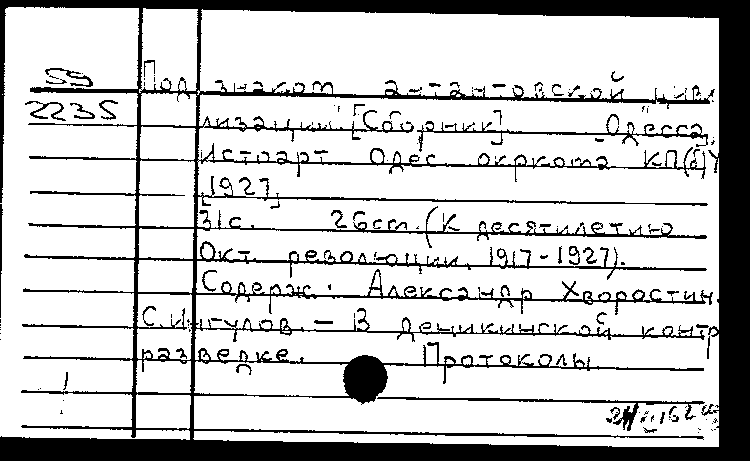 59
2235
Под знаком "антантовской циви
лизации" [Сборник]. Одесса,
Истпарт Одес. окркома КП(б)У
[1927]
31с. 26см. (К десятилетию
Окт. революции, 1917-1927).
Содерж.: Александр Хворостин.
С. Ингулов. – В деникинской контр
разведке. Протоколы